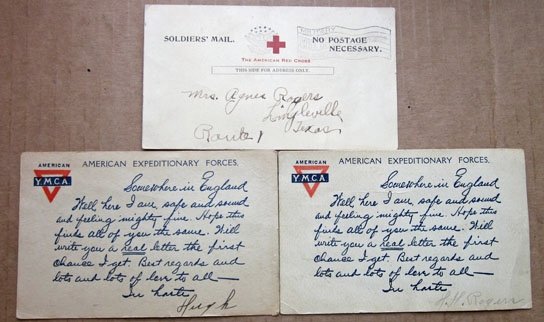 SOLDIERS' MAIL.
NO POSTAGE
NECESSARY.
THE AMERICAN RED CROSS
THIS SIDE FOR ADDRESS ONLY.
Mrs. Agnes Rogers
Lingleville
Texas
Route 1
AMERICAN
Y.M.C.A.
AMERICAN EXPEDITIONARY FORCES.
Somewhere in England
Well here I am, safe and sound
and feeling mighty fine. Hope this
finds all of you the same. Will
write you a real letter the first
chance I get. Best regards and
lots and lots of love to all—
In haste
Hugh
AMERICAN
Y.M.C.A.
AMERICAN EXPEDITIONARY FORCES.
Somewhere in England
Well here I am, safe and sound
and feeling mighty fine. Hope this
finds all of you the same. Will
write you a real letter the first
chance I get. Best regards and
lots and lots of love to all—
In haste
Rogers